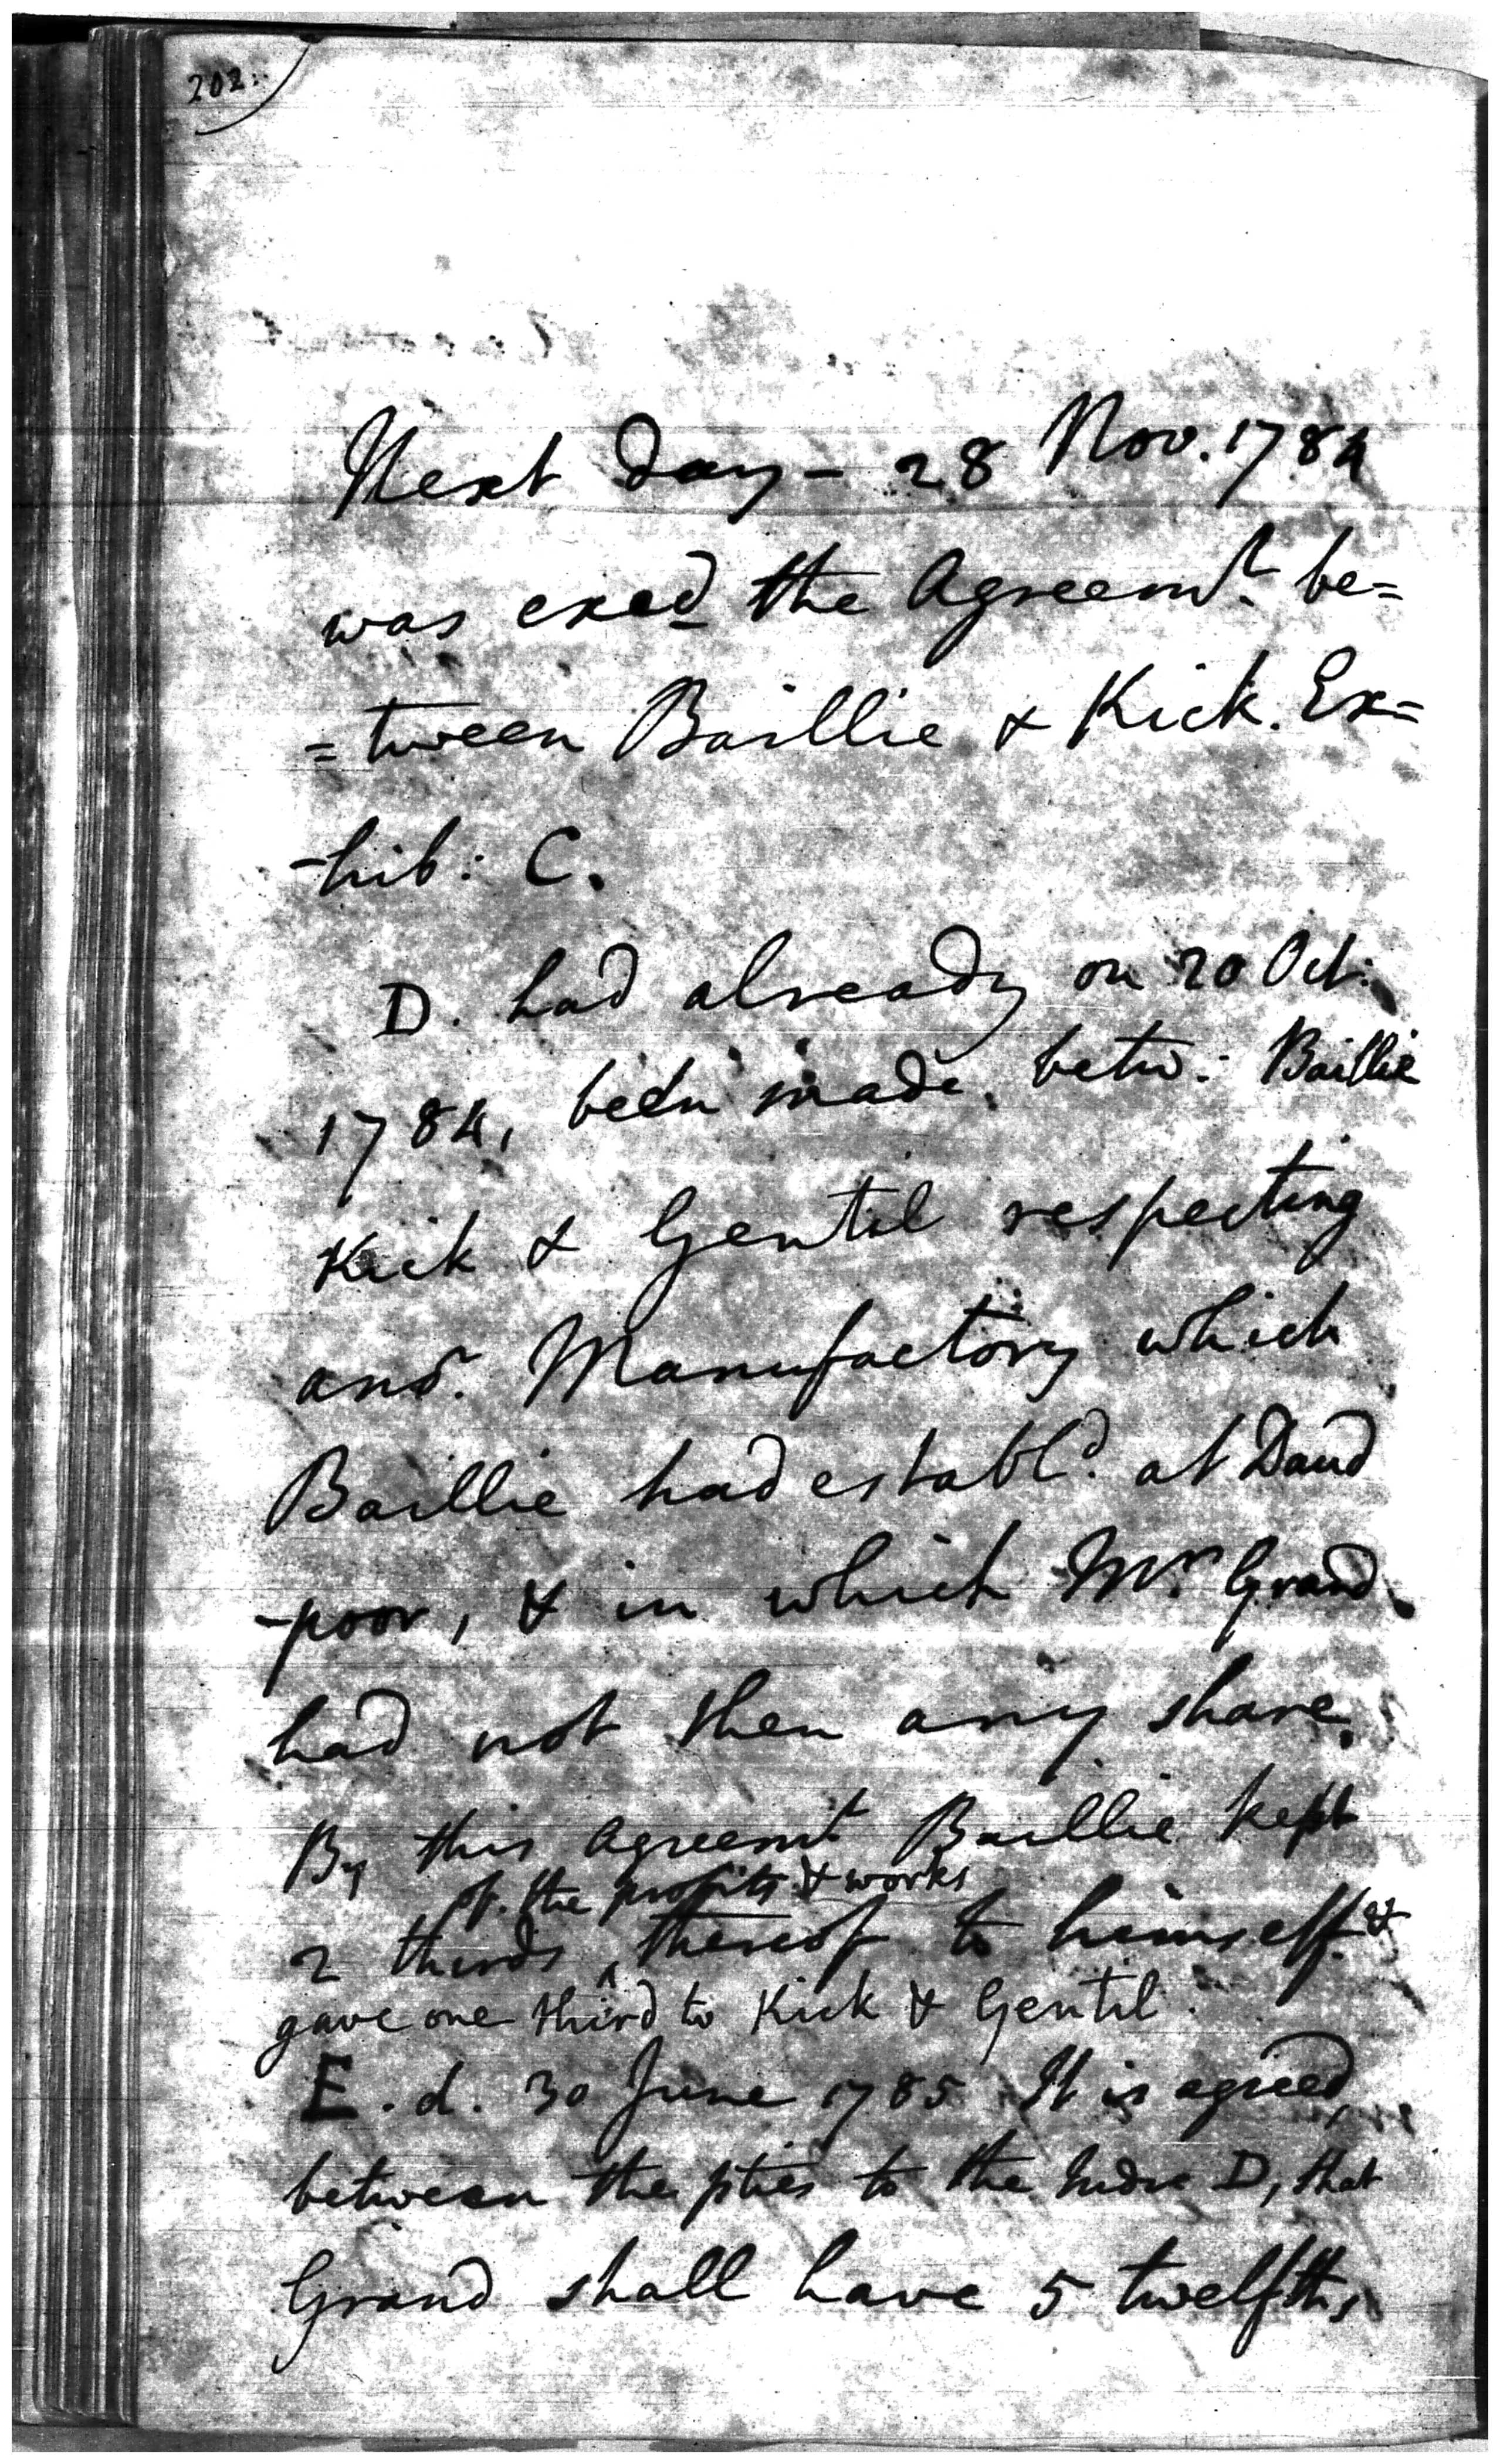 202.
Next day - 28 Nov. 1784
was exed the Agreemt. be=
=tween Baillie & Kick. Ex=
-hib: C.
D. had already on 20 Oct:
1784, been made, betw: Baillie
Kick & Gentil respecting
anor. Manufactory which
Baillie had establd. at Daud
-poor, & in which Mr. Grand
had not then any share.
By this Agreemt Baillie kept
of the profits & works
2 thirds ^ thereof to himself &
gave one third to Kick & Gentil.
E. d. 30 June 1785 It is agreed,
between the pties to the Indre D, that
Grand shall have 5 twelfths